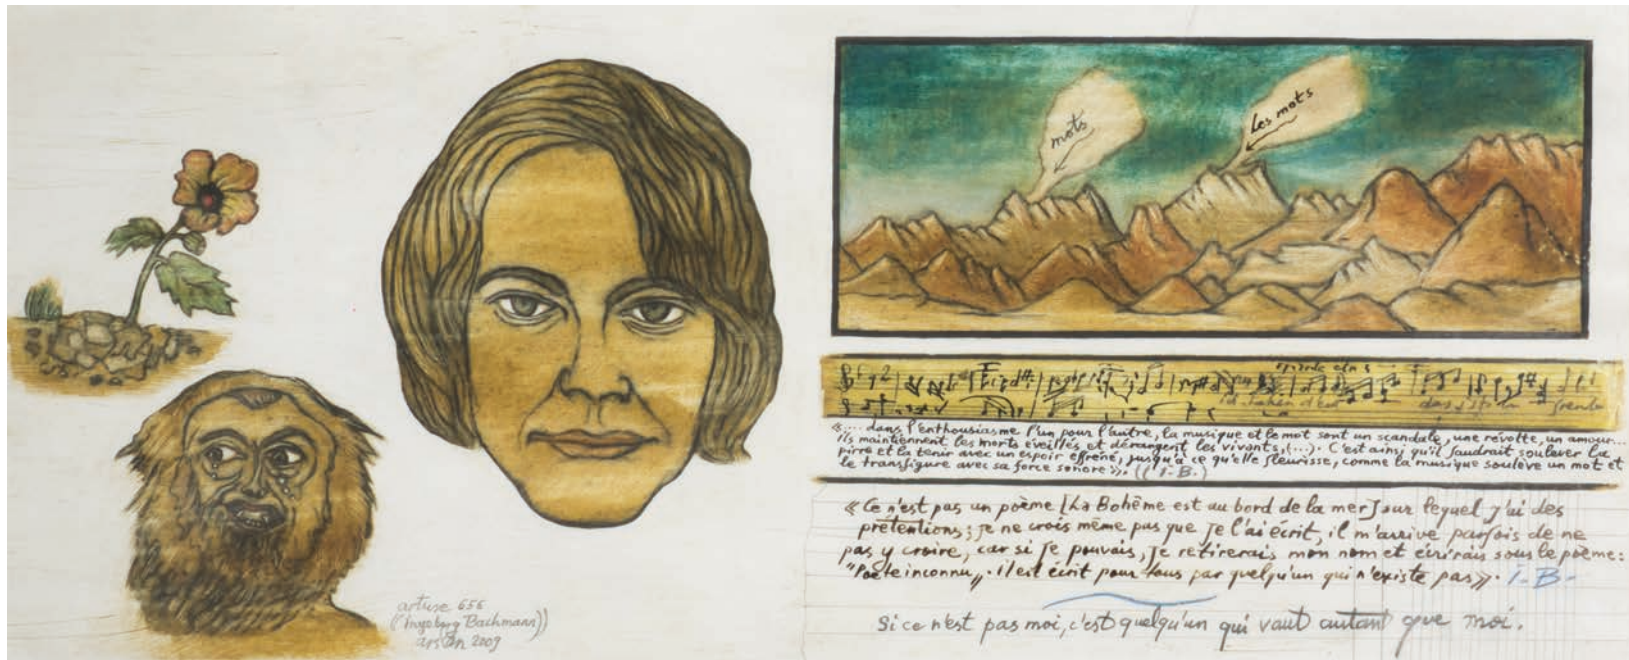 artuse 656
((Ingeborg Bachmann))
arsén 2009
mots
Les mots
«.... dans l'enthousiasme l'un pour l'autre, la musique et le mot sont un scandale, une révolte, un amour...
ils maintiennent les morts éveillés et dérangent les vivants, (...). C'est ainsi qu'il faudrait soulever la
pirre et la tenir avec un espoir effréné, jusqu'à ce qu'elle fleurisse, comme la musique soulève un mot et
le transfigure avec sa force sonore». ((I-B.)
«Ce n'est pas un poème [La Bohême est au bord de la mer] sur lequel j'ai des
prétentions; je ne crois même pas que je l'ai écrit, il m'arrive parfois de ne
pas y croire, car si je pouvais, je retirerais mon nom et écrirais sous le poème:
"Poète inconnu„. il est écrit pour tous par quelqu'un qui n'existe pas». I-B-
Si ce n'est pas moi, c'est quelqu'un qui vaut autant que moi.